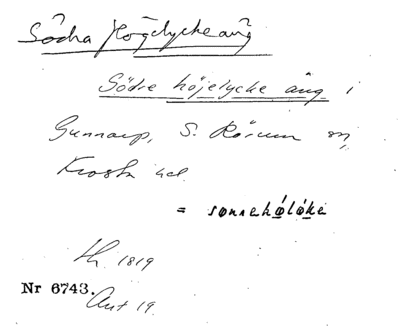 Södra Högelyckeäng
Södre höjelycke äng i
Gunnarp, S. Rörum sn,
Frosta hd
= sönnehölöke
Lh. 1819
Nr 6743.
Akt 19.